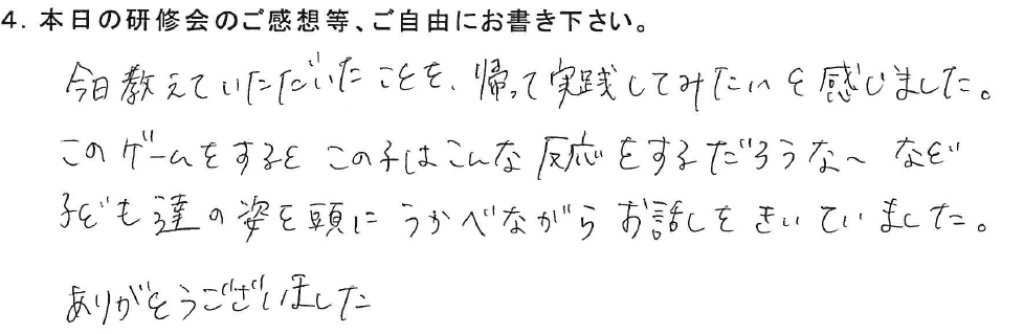 4. 本日の研修会のご感想等、ご自由にお書き下さい。
今日教えていただいたことを、帰って実践してみたいと感じました。
このゲームをすると この子はこんな反応をするだろうな〜 など
子ども達の姿を頭にうかべながらお話しをきいていました。
ありがとうございました